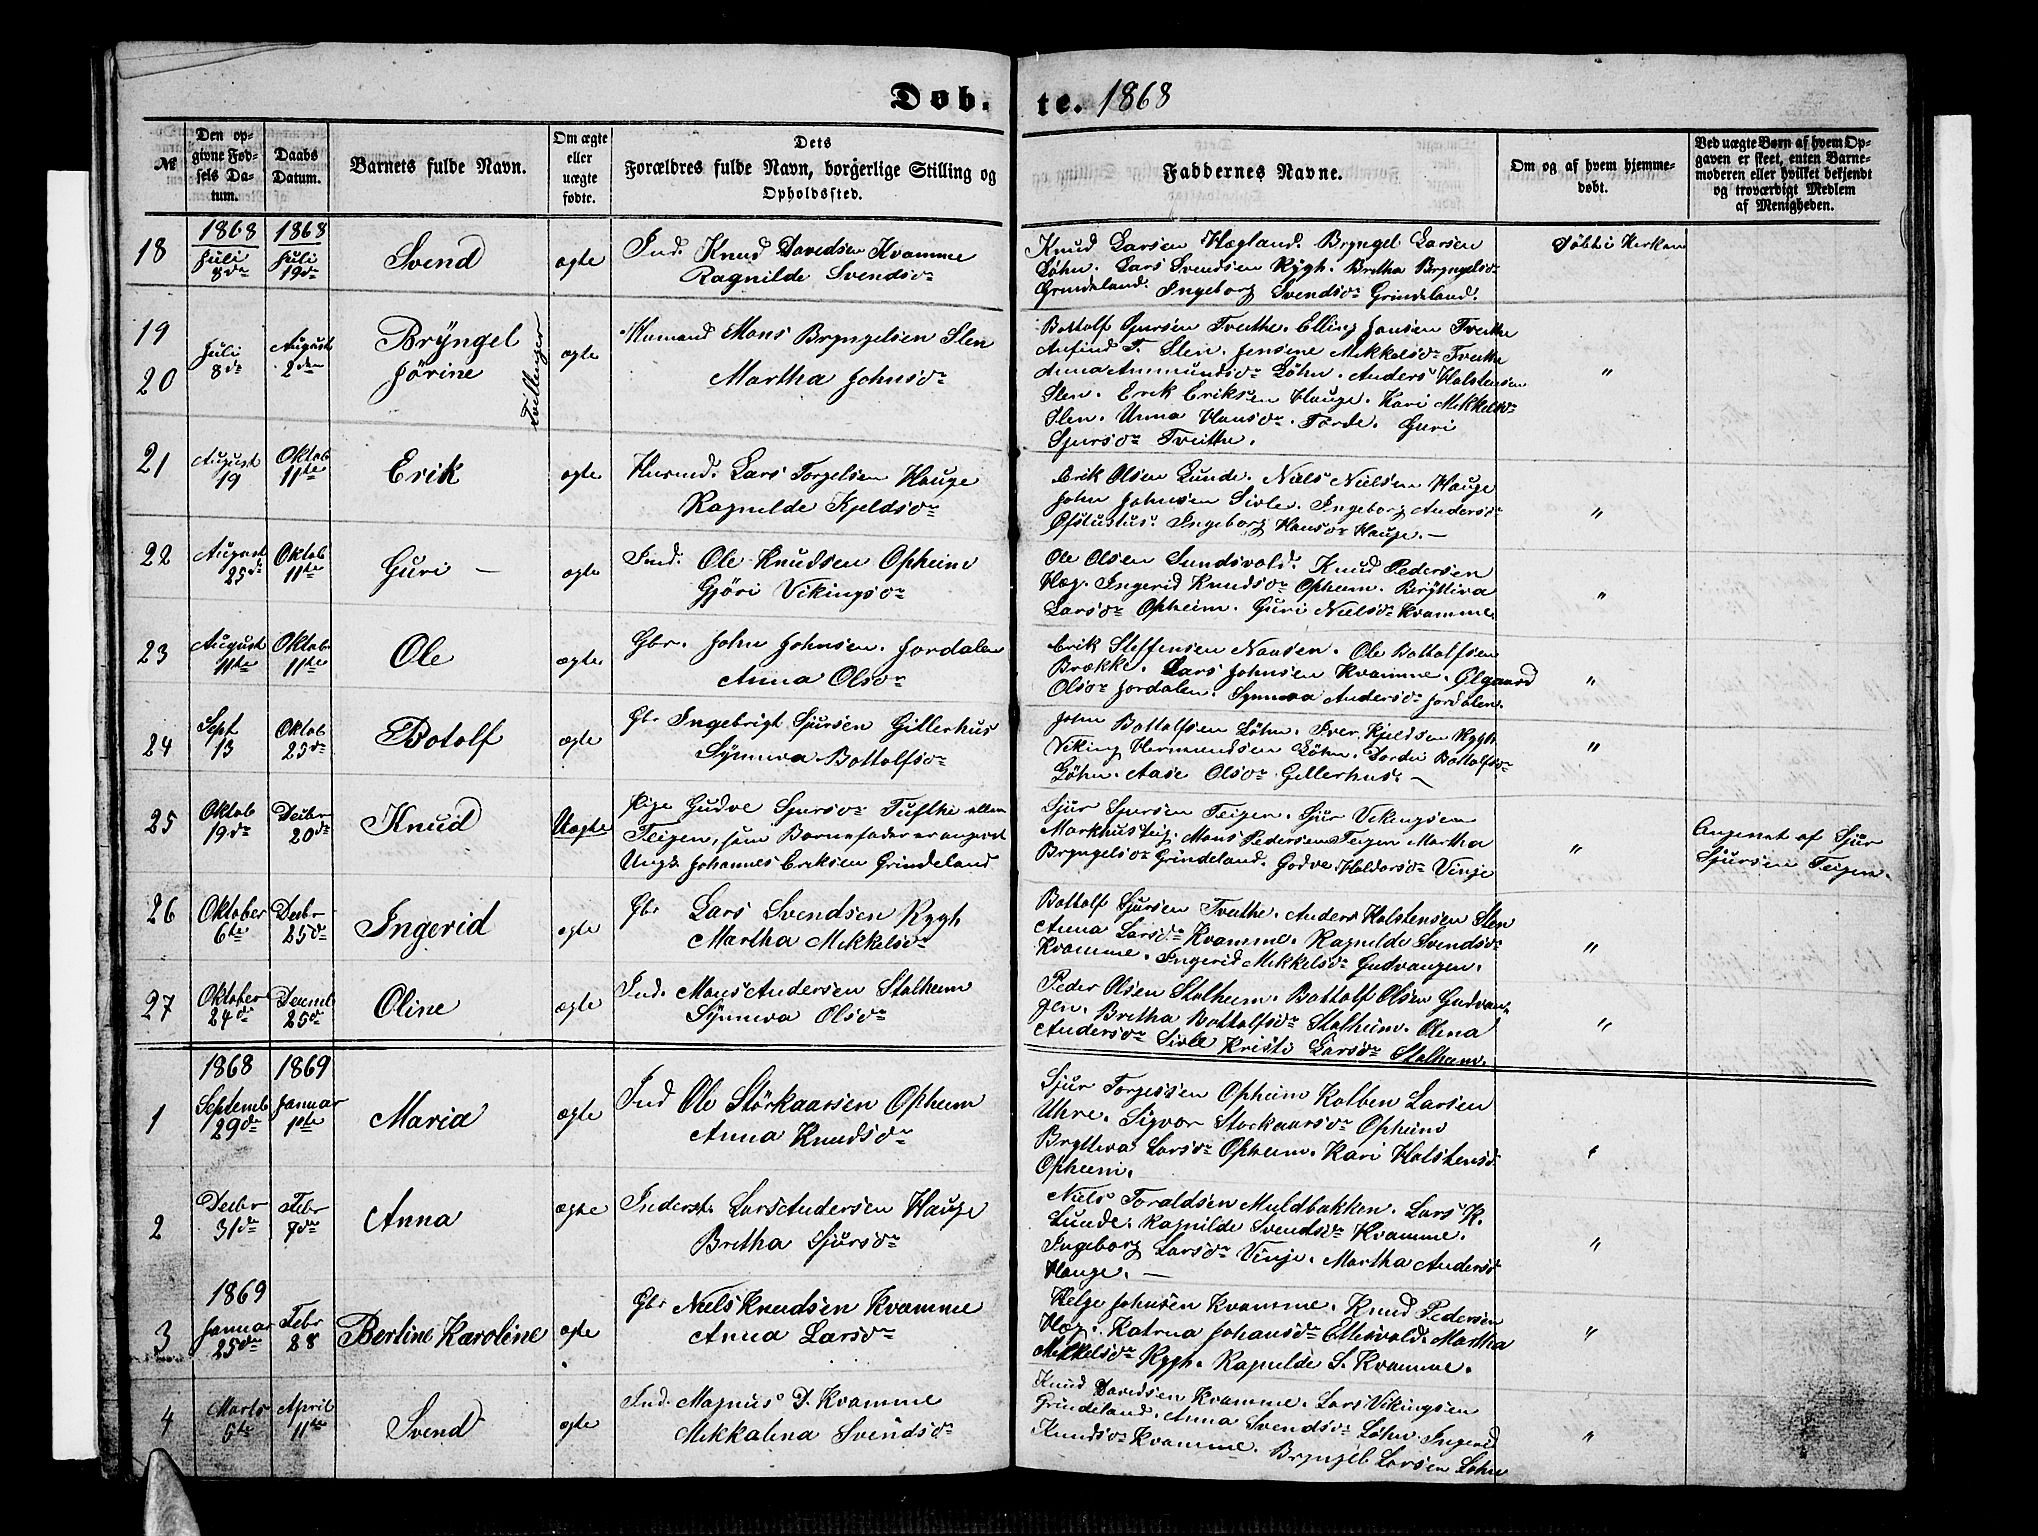 Døbte. 1868
№
Den op-
givne Fød-
sels Da-
tum.
Daabs
Datum.
Barnets fulde Navn.
Om ægte
eller
uægte
fødte.
Dets
Forældres fulde Navn, borgerlige Stilling og
Opholdssted.
Faddernes Navne.
Om og af hvem hjemme-
døbt.
Ved uægte Børn af hvem Op-
gaven er skeet, enten Barne-
moderen eller hvilket bekjendt
og troværdigt Medlem
af Menigheden.
18
1868
Juli
8de
1868
Juli
19de
Svend
ægte
Ind. Knud Davidsen Kvamme
Ragnilde Svendsdr
Knud Larsen Hægland. Bryngel Larsen
Løhn. Lars Svendsen Rygh. Bretha Bryngelsdr
Grindeland. Ingeborg Svendsdr Grindeland.
Døbt i Kirken
19
20
Juli
8de
August
2den
Bryngel
Jørine
Tvillinger
ægte
Husmand Mons Bryngelsen Slen
Martha Johnsdr
Bottolf Sjursen Tveithe. Elling Jonsen Tveithe
Anfind T. Slen. Jensine Mikkelsdr Tveithe
Anna Ammundsdr Løhn. Anders Halstensen
Slen. Erik Eriksen Hauge. Kari Mikkelsdr
Slen. Unna Hansdr Førde. Guri
Sjursdr Tveithe.
"
21
August
19
Oktob
11te
Erik
ægte
Husmd. Lars Torgelsen Hauge
Ragnilde Kjeldsdr
Erik Olsen Lunde. Niels Nielsen Hauge
John Johnsen Sivle. Ingeborg Andersdr
Ingeborg Hansdr Hauge. —
"
22
August
25de
Oktob
11te
Guri —
ægte
Ind. Ole Knudsen Opheim
Gjøri Vikingsdr
Ole Olsen Sundsvold. Knud Pedersen
Hæg. Ingerid Knudsdr Opheim. Brytteva
Larsdr Opheim. Guri Nielsdr Kvamme.
"
23
August
11te
Oktob
11te
Ole
ægte
Gbr. John Johnsen. Jordalen
Anna Olsdr
Erik Steffensen Naasen. Ole Bottolfsen
Brække. Lars Johnsen Kvamme. Ølgaard
Olsdr Jordalen. Synneva Andersdr Jordalen.
"
24
Sept
13
Oktob
25de
Botolf
ægte
Gbr Ingebrigt Sjursen Gillerhus
Synneva Bottolfsdr
John Bottolfsen Løhn. Iver Kjeldsen Rygh
Viking Hermundsen Løhn. Dordei Bottolfsdr
Løhn. Aase Olsdr Gillerhus. —
"
25
Oktob
19de
Decbr
20de
Knud
Uægte
Pige Gudve Sjursdr Tufthe ellem
Teigen, som Barnefader er angivet
Ungk Johannes Eriksen Grindeland
Sjur Sjursen Teigen. Sjur Vikingsen
Markhusteig. Mons Pedersen Teigen Martha
Bryngelsdr Grindeland. Godve Haldorsdr Vinje
"
Angivet af Sjur
Sjursen Teigen.
26
Oktober
6te
Decbr
25de
Ingerid
ægte
Gbr Lars Svendsen Rygh
Martha Mikkelsdr
Bottolf Sjursen Tveithe. Anders Halstensen Slen
Anna Larsdr Kvamme. Ragnilde Svendsdr
Kvamme. Ingerid Mikkelsdr Gudvangen.
"
27
Oktober
24de
Decemb
25de
Oline
ægte
Ind. Mons Andersen Stalheim
Synneva Olsdr
Peder Olsen Stalheim. Bottolf Olsen Gudvan-
gen. Bretha Bottolfsdr Stalheim. Olena
Andersdr Sivle Kristi Larsdr Stalheim.
"
1
1868
Septemb
29de
1869
Januar
1ste
Maria
ægte
Ind Ole Störkaarsen Opheim
Anna Knudsdr
Sjur Torgessen Opheim Kolben Larsen
Uhre. Sigvor Storkaarsdr Opheim
Brytteva Larsdr Opheim. Kari Halstensd
Opheim.
"
2
Decbr
31de
Febr
7de
Anna
ægte
Inderst. Lars Andersen Hauge
Bretha Sjursdr
Niels Toraldsen Muldbakken. Lars K.
Lunde. Ragnilde Svendsdr Kvamme.
Ingeborg Larsdr Vinje. Martha Andersd
Hauge. —
"
3
1869
Januar
25de
Febr
28
Berline Karoline
ægte
Gbr Niels Knudsen Kvamme
Anna Larsdr
Helge Johnsen Kvamme. Knud Pedersen
Hæg. Katrina Johansdr Ettesvold. Martha
Mikkelsdr Rygh. Ragnilde S. Kvamme.
"
4
Marts
6te
April
11te
Svend
ægte
Ind. Magnus D. Kvamme
Mikkalena Svendsdr
Knud Davidsen Kvamme. Lars Vikingsen
Grindeland. Anna Svendsdr Løhn. Ingerid
Knudsdr Kvamme. Bryngel Larsen Løhn
"